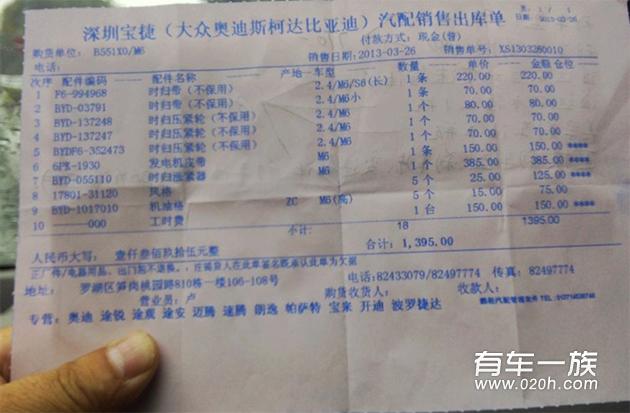 深圳宝捷（大众奥迪斯柯达比亚迪）汽配销售出库单
页：1 / 1
日期：2013-03-26
付款方式：现金(普)
购货单位：B551X0/M6 销售日期:2013-03-26 销售单号：XS1303280010
电话：
次序 配件编码 配件名称 产地 车型 数量 单价 金额 仓位
1 F6-994968 时归带（不保用） 2.4/M6/S6(长) 1 条 220.00 220.00
2 BYD-03791 时归带（不保用） 2.4/M6小 1 条 70.00 70.00
3 BYD-137248 时归压紧轮（不保用） 2.4/M6 1 个 80.00 80.00
4 BYD-137247 时归压紧轮（不保用） 2.4/M6 1 个 70.00 70.00
5 BYDF6-352473 时归压紧轮（不保用） 2.4/M6 1 个 70.00 70.00
6 6PK-1930 发电机皮带 M6 1 条 150.00 150.00 ****
7 BYD-055110 时归涨紧器 M6 1 个 385.00 385.00 ****
8 17801-31120 风格 5 个 25.00 125.00 ****
9 BYD-1017010 机油格 ZC M6(高) 5 个 15.00 75.00
10 ----000 工时费 1 台 150.00 150.00 ****
小计: 18 1395.00
人民币大写： 壹仟叁佰玖拾伍元整 合计：1,395.00
地址： 罗湖区笋岗桃园路810栋一楼106-108号 电话:82433079/82497774 传真：82497774
营业员：卢 购货收货人： 收款人：
专营：奥迪 途锐 途观 途安 迈腾 速腾 朗逸 帕萨特 宝来 开迪 波罗捷达
有车一族
www.020h.com